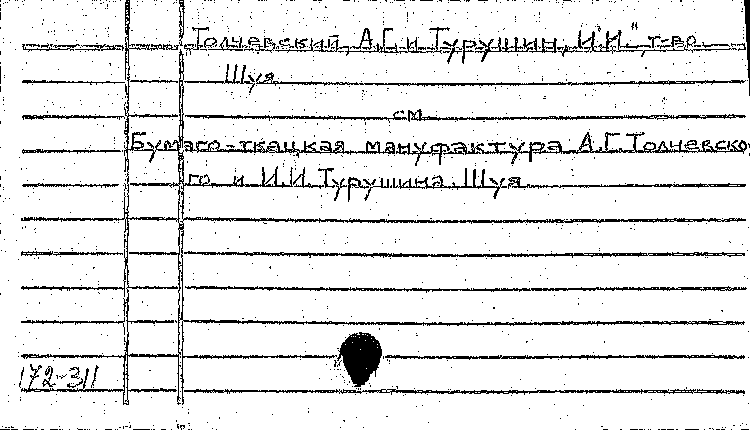 „Толчевский, А.Г. и Турушин, И.И.", т-во.
Шуя
см.
Бумаго-ткацкая мануфактура А.Г. Толчевско
го и И.И. Турушина. Шуя
172-311